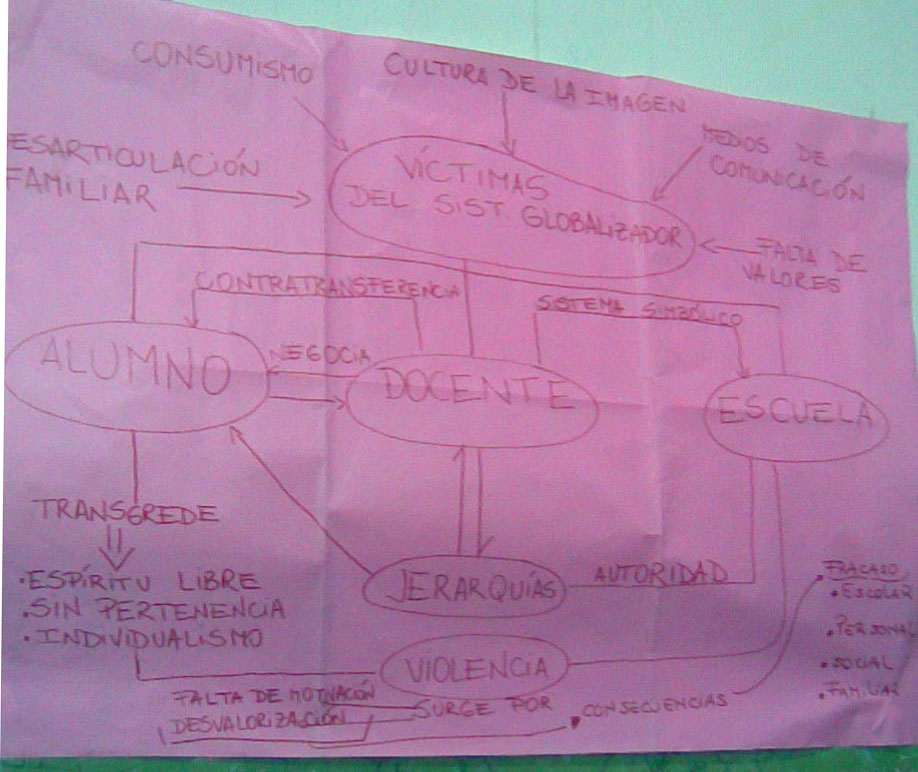 CONSUMISMO
CULTURA DE LA IMAGEN
MEDIOS DE
COMUNICACIÓN
ESARTICULACIÓN
FAMILIAR
VÍCTIMAS
DEL SIST. GLOBALIZADOR
FALTA DE
VALORES
CONTRATRANSFERENCIA
SISTEMA SIMBÓLICO
ALUMNO
NEGOCIA
DOCENTE
ESCUELA
TRANSGREDE
• ESPÍRITU LIBRE
• SIN PERTENENCIA
• INDIVIDUALISMO
JERARQUÍAS
AUTORIDAD
FRACASO
• ESCOLAR
• PERSONAL
• SOCIAL
• FAMILIAR
VIOLENCIA
FALTA DE MOTIVACIÓN
DESVALORIZACIÓN
SURGE POR
CONSECUENCIAS